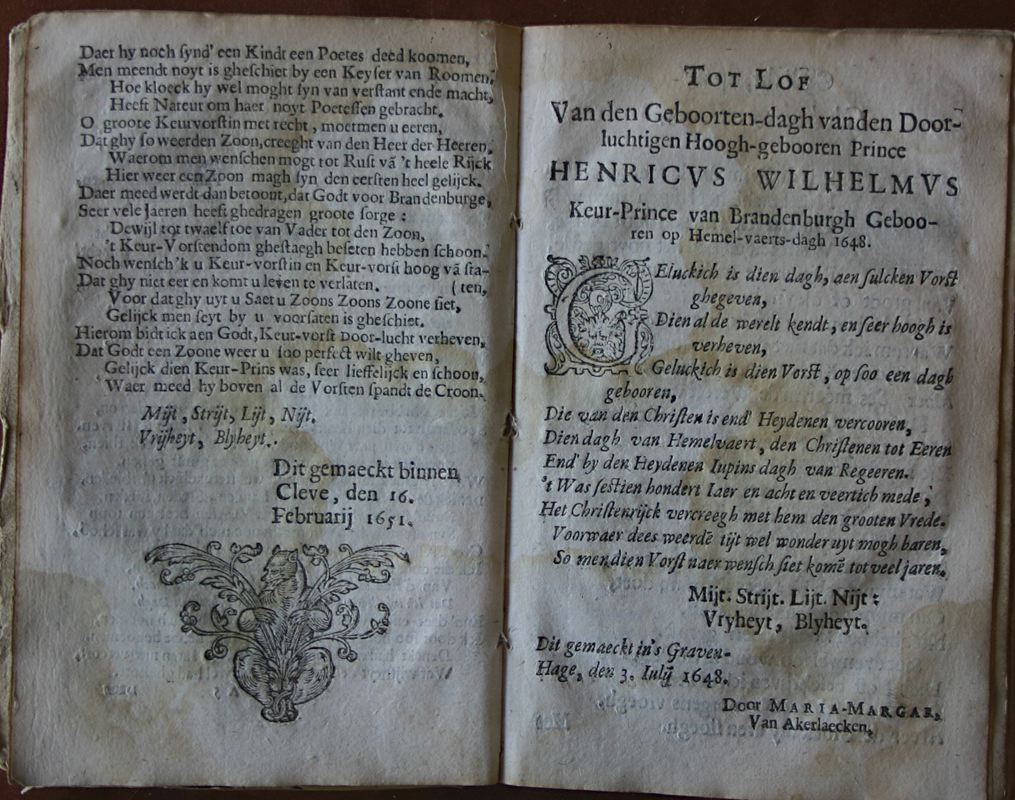 Daer hy noch synd' een Kindt een Poetes deed koomen,
Men meendt noyt is gheschiet by een Keyser van Roomen.
Hoe kloeck hy wel moght syn van verstant ende macht,
Heeft Nateur om haer noyt Poetessen gebracht.
O groote Keurvorstin met recht, moetmen u eeren,
Dat ghy so weerden Zoon, creeght van den Heer der Heeren.
Waerom men wenschen mogt tot Rust vā 't heele Rijck
Hier weer een Zoon magh syn den eersten heel gelijck.
Daer meed werdt dan betoont, dat Godt voor Brandenburge,
Seer vele jaeren heeft ghedragen groote sorge:
Dewijl tot twaelf toe van Vader tot den Zoon,
't Keur-Vorstendom ghestaegh beseten hebben schoon.
Noch wensch'k u Keur-vorstin en Keur-vorst hoog vā sta-
Dat ghy niet eer en komt u leven te verlaten. (ten,
Voor dat ghy uyt u Saet u Zoons Zoons Zoone siet,
Gelijck men seyt by u voorsaten is gheschiet.
Hierom bidt ick aen Godt, Keur-vorst Door-lucht verheven,
Dat Godt een Zoone weer u soo perfect wilt gheven,
Gelijck dien Keur-Prins was, seer lieffelijck en schoon,
Waer meed hy boven al de Vorsten spandt de Croon.
Mijt, Strijt, Lijt, Nijt.
Vrijheyt, Blyheyt.
Dit gemaeckt binnen
Cleve, den 16.
Februarij 1651.
TOT LOF
Van den Geboorten-dagh vanden Door-
luchtigen Hoogh-gebooren Prince
HENRICVS WILHELMVS
Keur-Prince van Brandenburgh Geboo-
ren op Hemel-vaerts-dagh 1648.
GEluckich is dien dagh, aen sulcken Vorst
ghegeven,
Dien al de werelt kendt, en seer hoogh is
verheven,
Geluckich is dien Vorst, op soo een dagh
gebooren,
Die van den Christen is end' Heydenen vercooren,
Dien dagh van Hemelvaert, den Christenen tot Eeren
End' by den Heydenen Iupins dagh van Regeeren.
't Was sestien hondert Iaer en acht en veertich mede,
Het Christenrijck vercreegh met hem den grooten Vrede.
Voorwaer dees weerde tijt wel wonder uyt mogh baren,
So men dien Vorst naer wensch siet komē tot veel jaren.
Mijt. Strijt. Lijt. Nijt:
Vryheyt, Blyheyt.
Dit gemaeckt in's Graven-
Hage, den 3. Iulij 1648.
Door MARIA-MARGAR,
Van Akerlaecken,